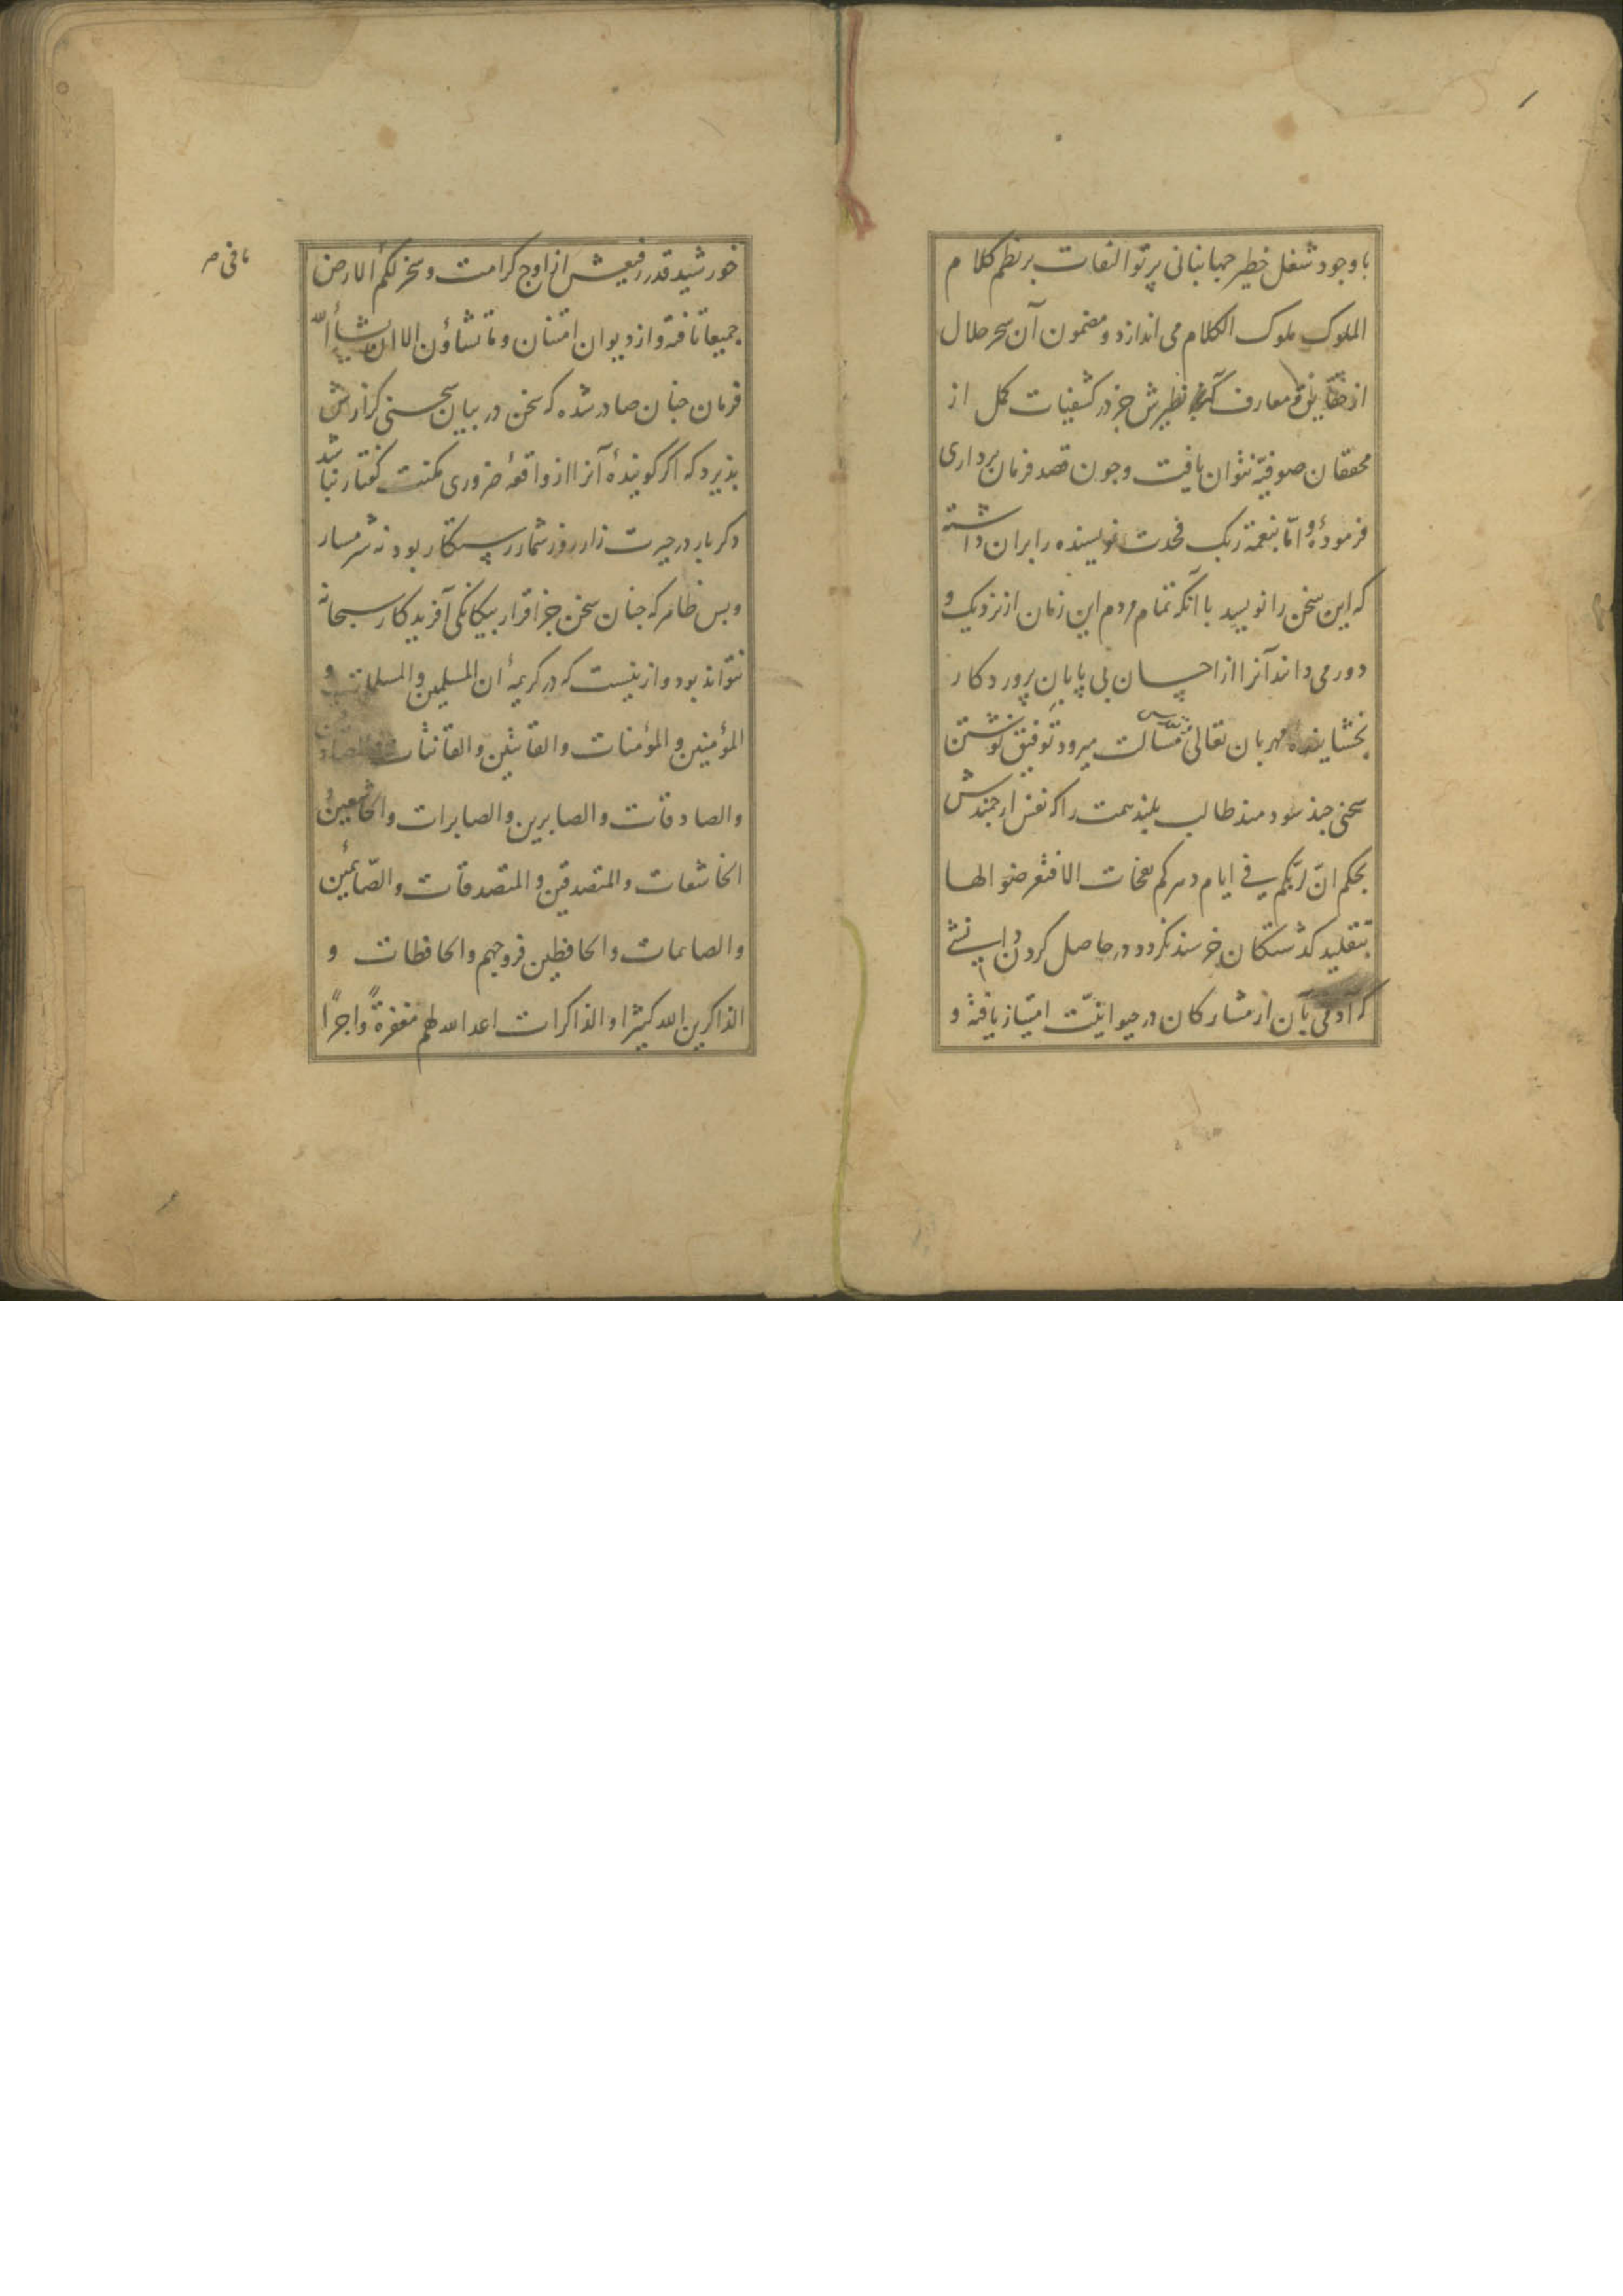 با وجود شغل خطیر جهانبانی پرتو التفات بر نظم کلام
الملوک ملوک الکلام می اندازد و مضمون آن سحر حلال
از حقایق و معارف آنکه نظیرش جز در کشفیات کمل از
محققان صوفیّه نتوان یافت وچون قصد فرمان برداری
فرمودهٔ و امّا بنعمة ربک فحدث نویسنده را بران داشته
که این سخن را نویسد با آنکه تمام مردم این زمان از نزدیک و
دور می داند آنرا از احسان بی پایانِ پروردکار
بخشاینده مهربان تعالی و تقدس مسألت میرود توفیق نوشتن
سخنی چند سودمند طالب بلند همت را که نفس ارجمندش
بحکم انّ لربّکم فی ایام دهرکم نفحات الا فتعرضوا لها
بتقلید کذشتکان خرسند نکردد و در حاصل کردن دانشی
که آدمی بآن از مشارکان در حیوانیّت امتیاز یافته و
باقی مر
خورشید قدر رفیعش از اوج کرامت و سخر لکم الارض
جمیعا تافته و از دیوان امتنان و ما تشاؤن الا ان یشأ الله
فرمان چنان صادر شده که سخن در بیان سخنی کزارش
پذیرد که اکر کویندهٔ آنرا از واقعهٔ ضروری مکنت کفتار نباشد
دکر بار در حیرت زار روز شمار رستکار بود نه شرمسار
و بس ظاهر که چنان سخن جز اقرار بیکانکی آفریدکار سبحانه
نتواند بود و ازینست که در کریمهٔ ان المسلمین والمسلمات و
المؤمنین والمؤمنات والقانتین والقانتات والصادقین
والصادقات والصابرین والصابرات والخاشعین و
الخاشعات والمتصدقین والمتصدقات والصّائمین
والصایمات والحافظین فروجهم والحافظات و
الذاکرین الله کثیرا والذاکرات اعد الله لهم مغفرةً واجرًا